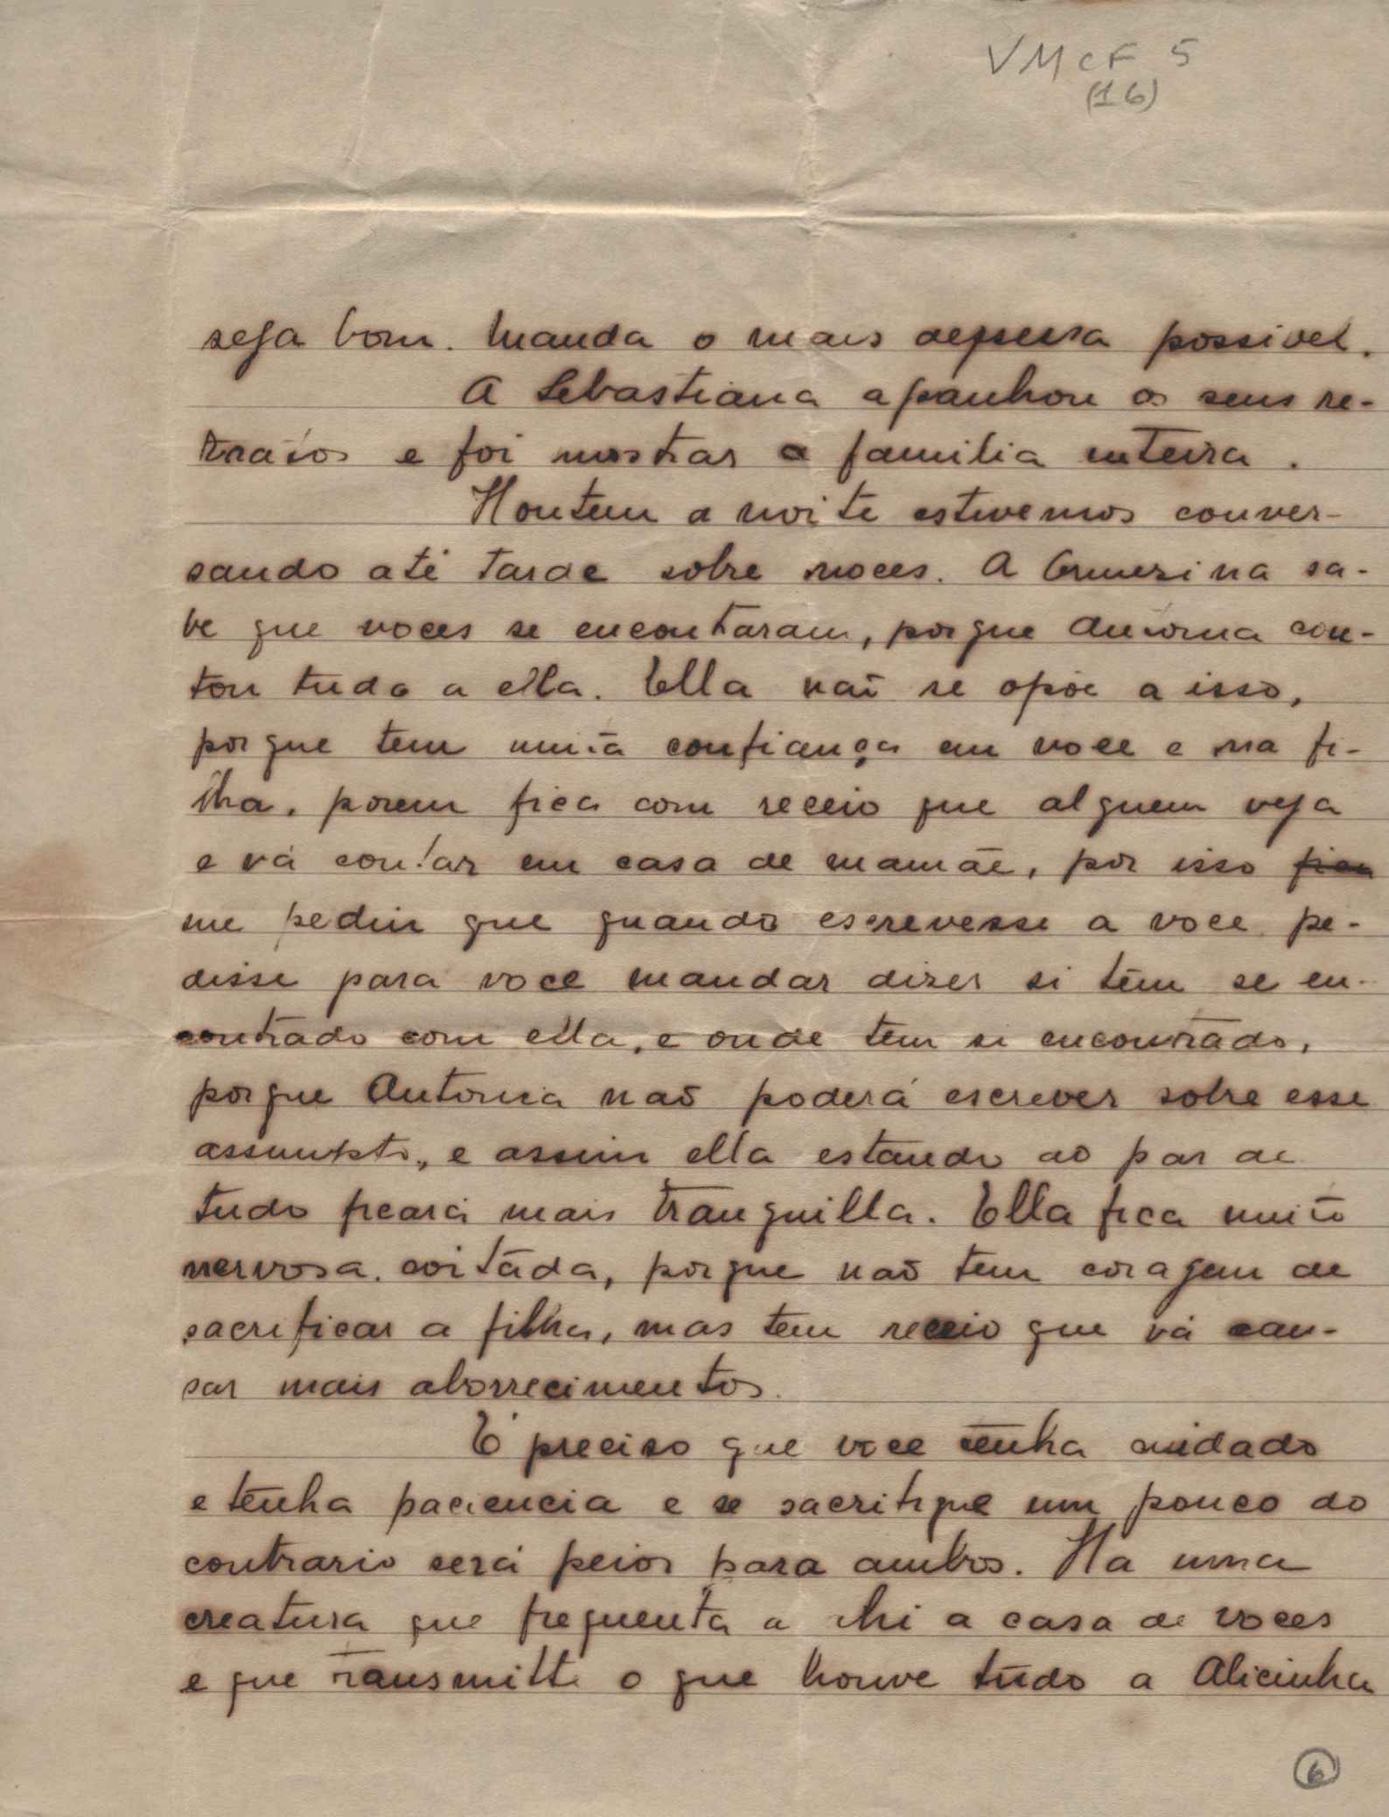 VMcF 5
(16)
seja bom. Manda o mais depressa possivel.
A Sebastiana apanhou os seus re-
tratos e foi mostrar a familia inteira.
Hontem a noite estivemos conver-
sando até tarde sobre voces. A Ermerina sa-
be que voces se encontraram, porque Antonia con-
tou tudo a ella. Ella não se opõe a isso,
porque tem muita confiança em voce e na fi-
lha, porem fica com receio que alguem veja
e vá contar em casa de mamãe, por isso fica
me pediu que quando escrevesse a voce pe-
disse para voce mandar dizer si têm se en-
contrado com ella, e onde tem si encontrado,
porque Antonia não poderá escrever sobre esse
assumpto, e assim ella estando ao par de
tudo ficará mais tranquilla. Ella fica muito
nervosa, coitada, porque não tem coragem de
sacrificar a filha, mas tem receio que vá cau-
sar mais aborrecimentos.
É preciso que voce tenha cuidado
e tenha paciencia e se sacrifique um pouco do
contrario será peior para ambos. Ha uma
creatura que frequenta a hi a casa de voces
e que transmitte o que houve tudo a Alicinha
6